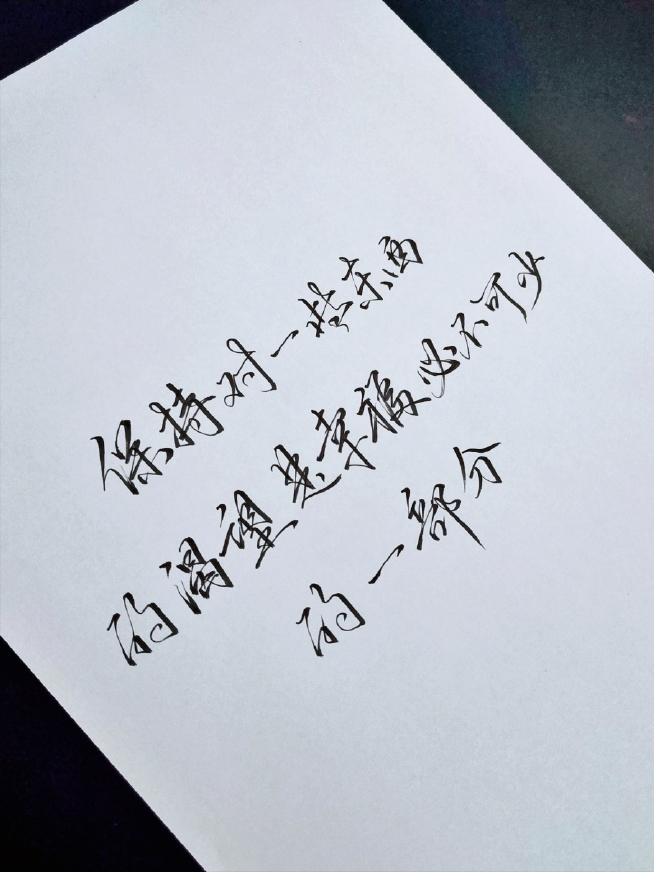 保持对一些东西
的渴望是幸福必不可少
的一部分